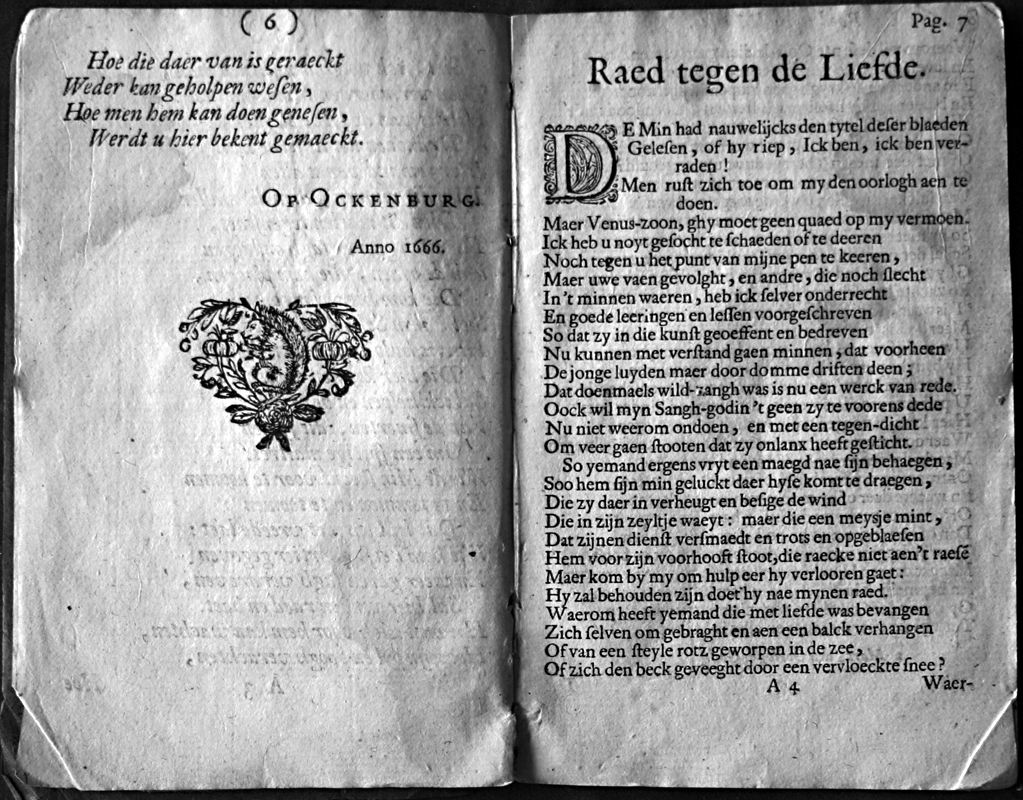 ( 6 )
Hoe die daer van is geraeckt
Weder kan geholpen weſen,
Hoe men hem kan doen geneſen,
Werdt u hier bekent gemaeckt.
OP OCKENBURG.
Anno 1666.
Pag. 7
Raed tegen de Liefde.
DE Min had nauwelijcks den tytel deſer blaeden
Geleſen, of hy riep, Ick ben, ick ben ver-
raden!
Men ruſt zich toe om my den oorlogh aen te
doen.
Maer Venus-zoon, ghy moet geen quaed op my vermoen.
Ick heb u noyt geſocht te ſchaeden of te deeren
Noch tegen u het punt van mijne pen te keeren,
Maer uwe vaen gevolght, en andre, die noch ſlecht
In 't minnen waeren, heb ick ſelver onderrecht
En goede leeringen en leſſen voorgeſchreven
So dat zy in die kunſt geoeffent en bedreven
Nu kunnen met verſtand gaen minnen, dat voorheen
De jonge luyden maer door domme driften deen;
Dat doenmaels wild-zangh was is nu een werck van rede.
Oock wil myn Sangh-godin 't geen zy te voorens dede
Nu niet weerom ondoen, en met een tegen-dicht
Om veer gaen ſtooten dat zy onlanx heeft geſticht.
So yemand ergens vryt een maegd nae ſijn behaegen,
Soo hem ſijn min geluckt daer hyſe komt te draegen,
Die zy daer in verheugt en beſige de wind
Die in zijn zeyltje waeyt: maer die een meysje mint,
Dat zijnen dienſt verſmaedt en trots en opgeblaeſen
Hem voor zijn voorhooft ſtoot, die raecke niet aen't raeſe
Maer kom by my om hulp eer hy verlooren gaet:
Hy zal behouden zijn doet hy nae mynen raed.
Waerom heeft yemand die met liefde was bevangen
Zich ſelven om gebraght en aen een balck verhangen
Of van een ſteyle rotz geworpen in de zee,
Of zich den beck geveeght door een vervloeckte ſnee?
A 4
Waer-